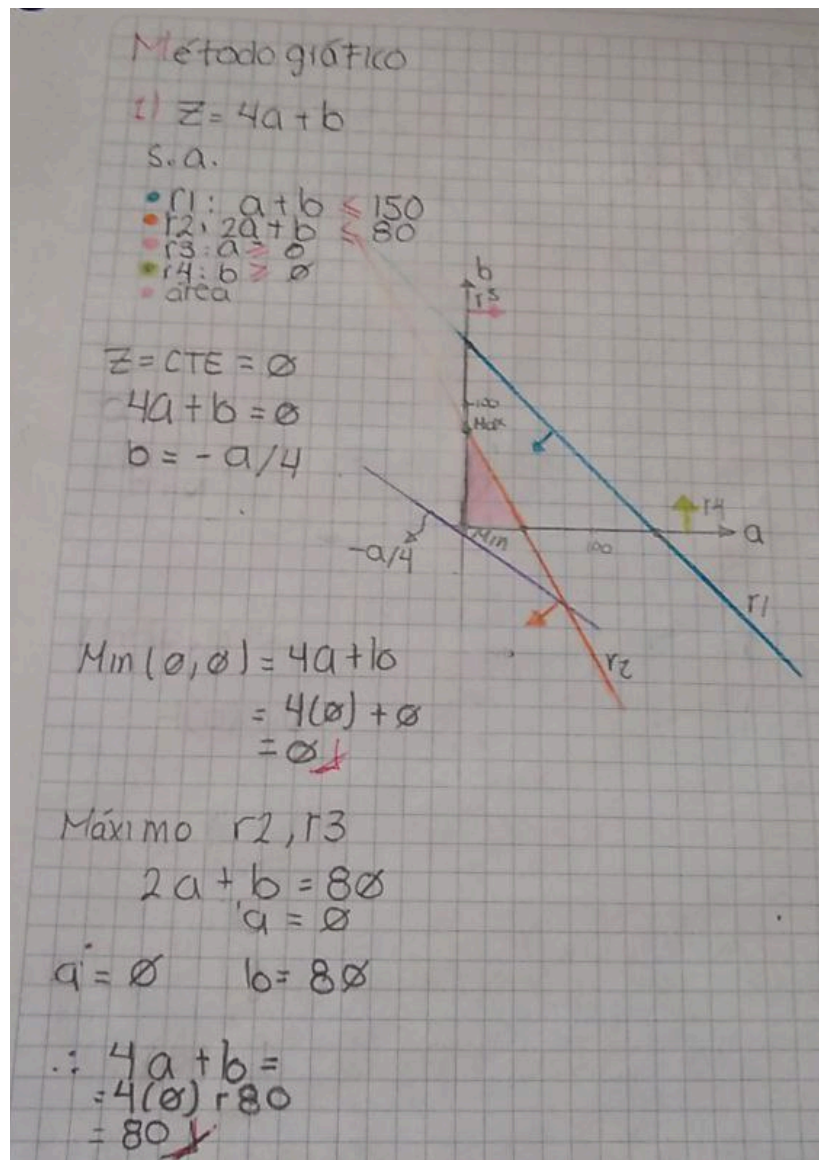 Método gráfico
1) Z = 4a + b
s.a.
• r1: a + b ≤ 150
• r2: 2a + b ≤ 80
• r3: a ≥ 0
• r4: b ≥ Ø
• área
b
r3
Z = CTE = Ø
4a + b = Ø
b = - a/4
100
Max
r4
a
Min
100
-a/4
r1
r2
Min (Ø, Ø) = 4a + b
= 4(Ø) + Ø
= Ø
Máximo r2, r3
2a + b = 8Ø
a = Ø
a = Ø b = 8Ø
∴ 4a + b =
= 4(Ø) + 80
= 80